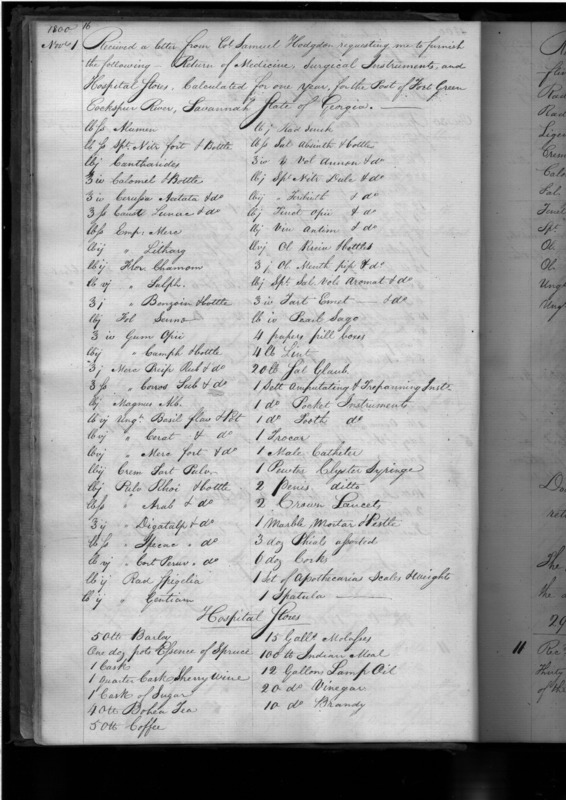 1800
16
Novr 1 Received a letter from Col Samuel Hodgdon requesting me to furnish
the following Return of Medicine, Surgical Instruments, and
Hospital Stores, Calculated for one year, for the Post of Fort Green
Cockspur River, Savannah State of Georgia.
lb ſs Alumen
lb ſs Spt Nitr fort & Bottle
lbj Cantharides
3 iv Calomel & Bottle
3 iv Cerussa Acetata & do
3 ſs Caust Lunar & do
lb ſs Emp. Merc
lb ij " Litharg
lb ij Flor Chamom
lb vj " Sulph.
3 j " Benzoin & bottle
lbj Fol Senna
3 iv Gum Opii
lbj " Camph & bottle
3 j Merc Precip Rub & do
3 ſs " Corros Sub & do
lbj Magnes Alb.
lb vj Ungt Basil flav & Pot
lb vj " Cerat & do
lb vj " Merc fort & do
lb ij Crem Tart Pulv
lbj Pulv Rhoi & bottle
lb ſs " Arab & do
3 ij " Digatalp & do
lb ſs " Ipecac " do
lb vj " Cort Peruv " do
lb ij Rad Spigelia
lb ij " Gentian
lbj Rad Senek
lb ſs Sal Absinth & bottle
3 iv " Vol Ammon & do
lbj Spt Nitr Dulc & do
lb ij " Terebinth & do
lbj Tinct Opii & do
lbj Vin Antim & do
Ol Ricin & bottles
3 j Ol Menth pip & do
lbj Spt Sal Vola Aromat & do
3 iv Tart Emet & do
lb iv Pearl Sago
4 papers pill boxes
4 lb Lint
20 lb Sal Glaub.
1 Sett Amputating & Trepanning Instr.
1 do Pocket Instruments
1 do Tooth do
1 Trocar
1 Male Catheter
1 Pewter Clyster Syringe
2 Penis ditto
2 Crown Lancets
1 Marble Mortar & Pestle
3 doz Phials assorted
6 doz Corks
1 Set of Apothecaries Scales & Weights
1 Spatula
Hospital Stores
50 lb Barley
One doz pots Essence of Spruce
1 Cask
1 Quarter Cask Sherry Wine
1 Cask of Sugar
40 lb Bohea Tea
50 lb Coffee
15 Galls Molasses
100 lb Indian Meal
12 Gallons Lamp Oil
20 do Vinegar
10 do Brandy
Rad
Rad
Crem
Sal.
Ol
Ol
Ung
Ung
The
the
29
11 Rec
Thirty
of th